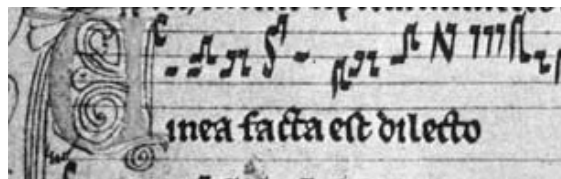 Vinea facta est dilecto